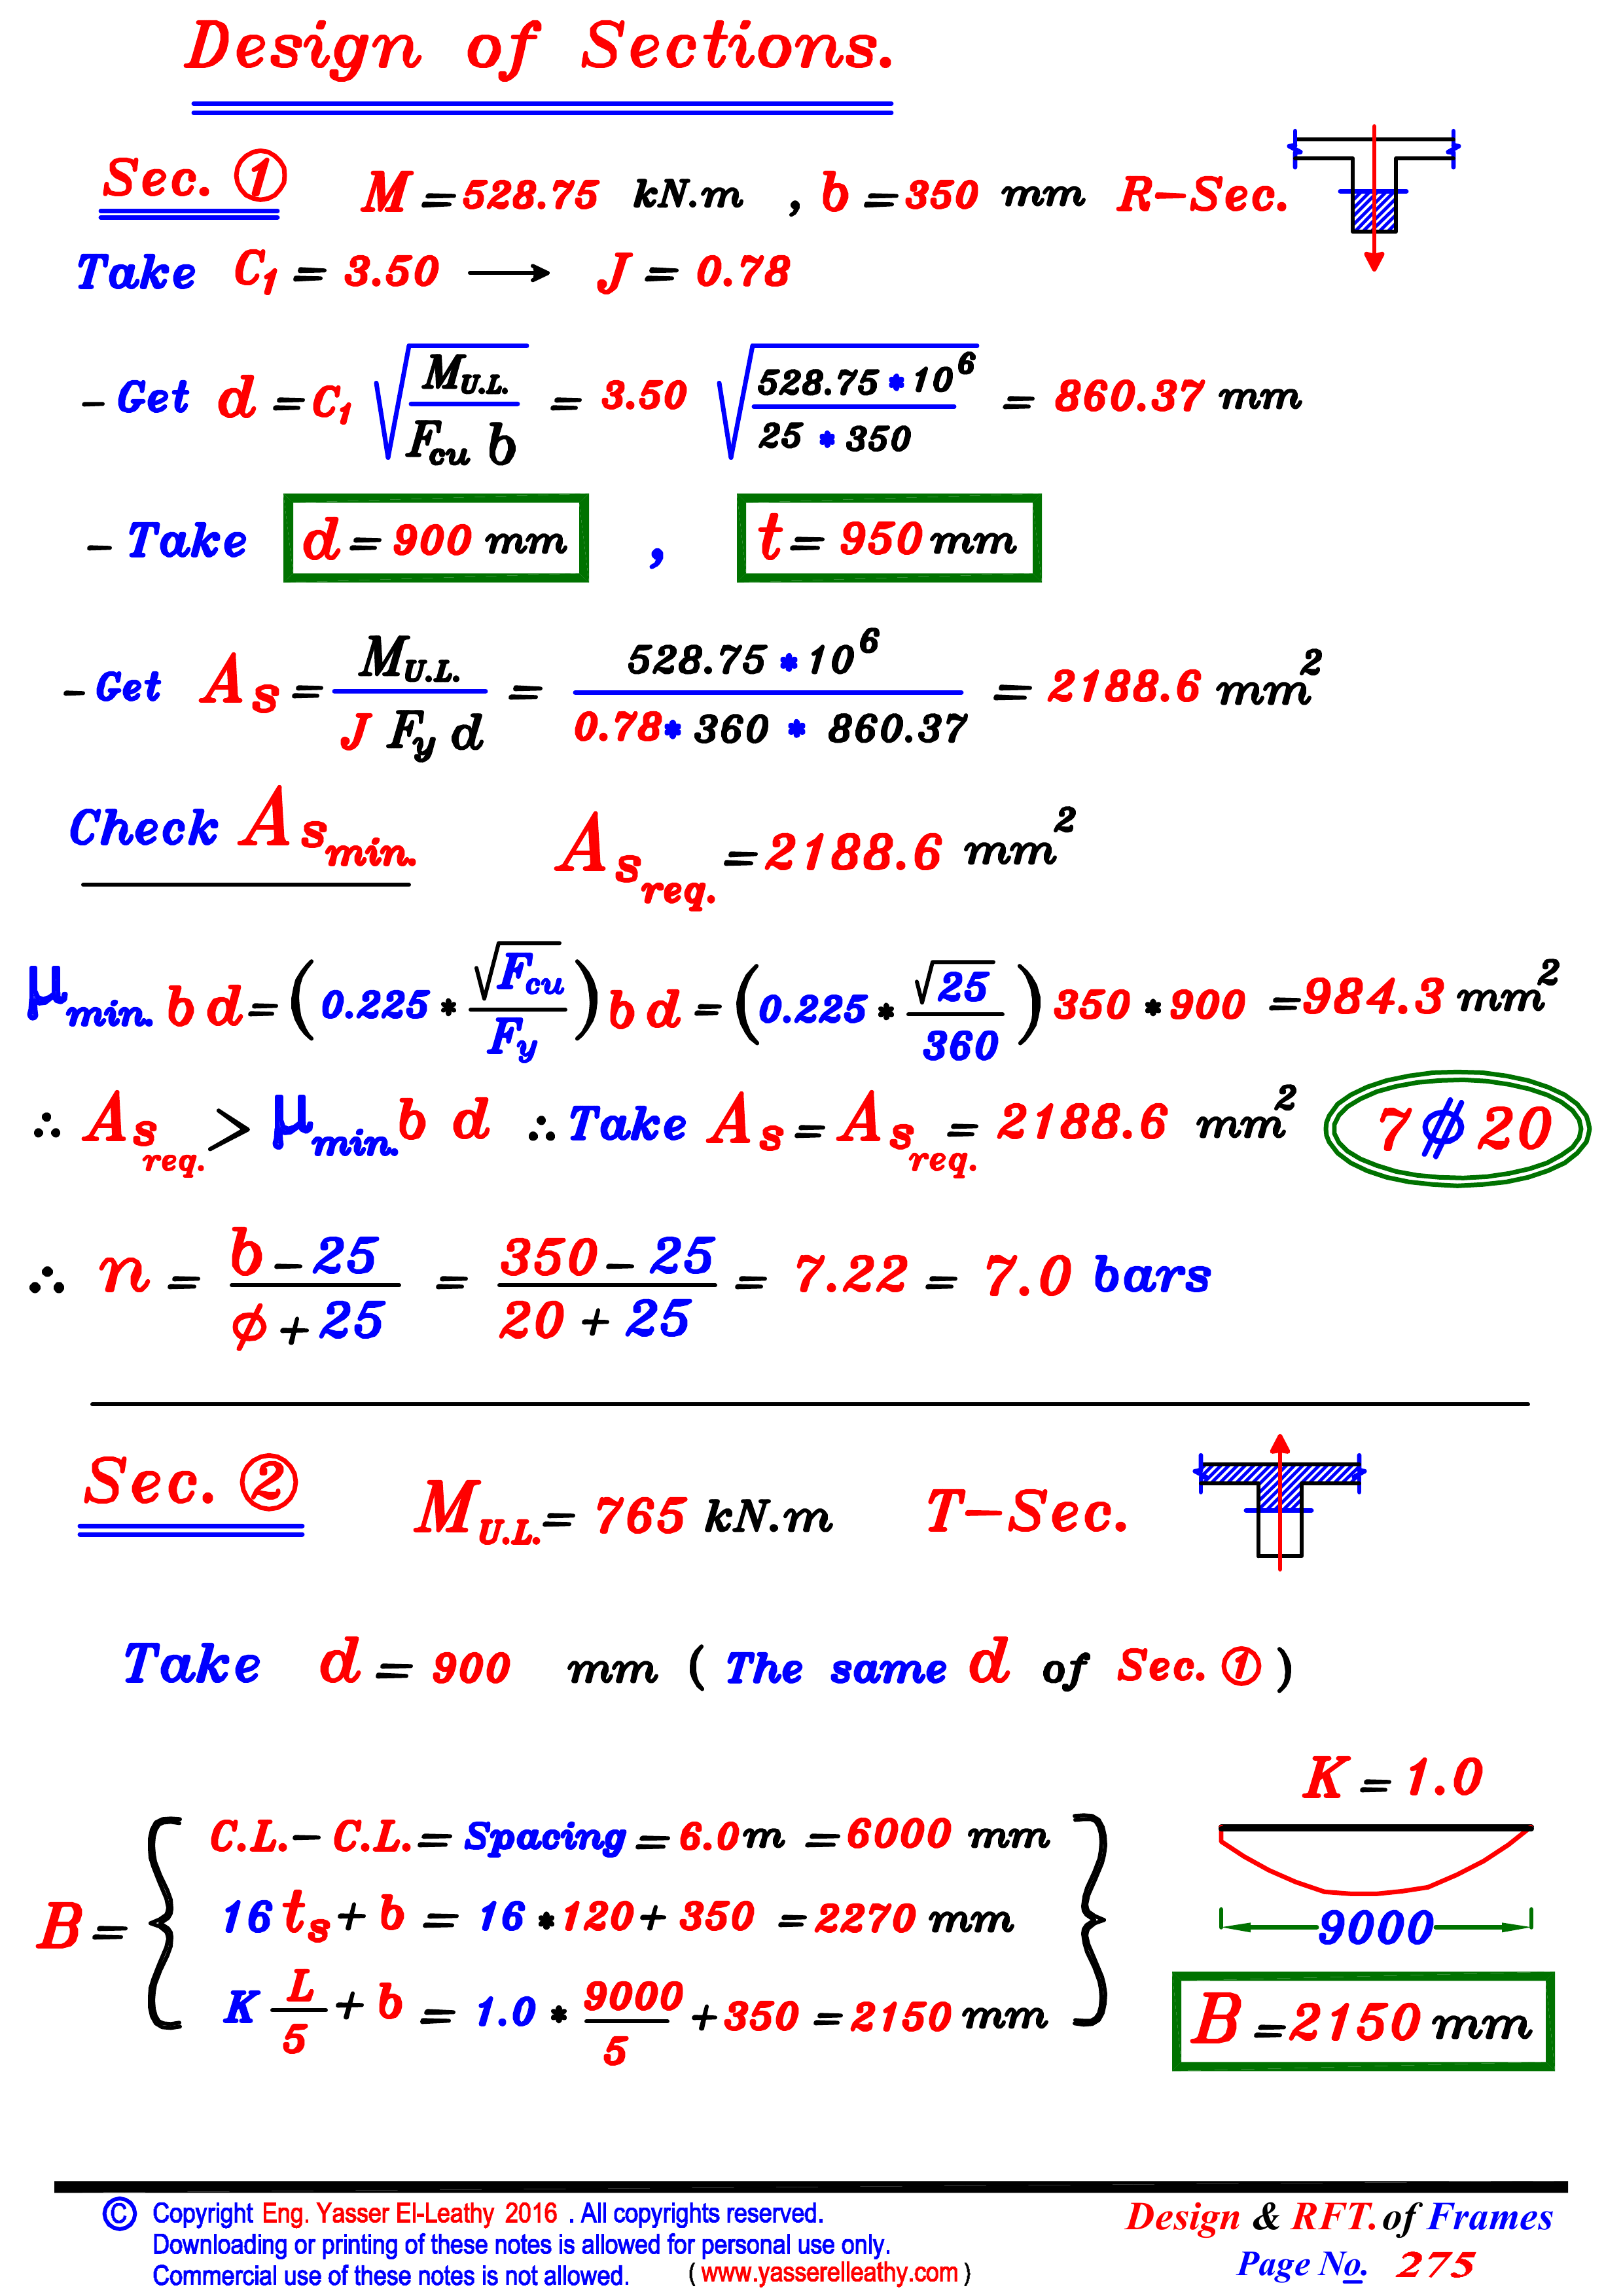 Design of Sections.
Sec. ① M = 528.75 kN.m , b = 350 mm R-Sec.
Take C₁ = 3.50 ⟶ J = 0.78
- Get d = C₁ √(M_U.L. / F_cu b) = 3.50 √(528.75 * 10⁶ / 25 * 350) = 860.37 mm
- Take d = 900 mm , t = 950 mm
- Get A_s = M_U.L. / J F_y d = 528.75 * 10⁶ / 0.78 * 360 * 860.37 = 2188.6 mm²
Check A_s min. A_s req. = 2188.6 mm²
μ_min. b d = (0.225 * √F_cu / F_y) b d = (0.225 * √25 / 360) 350 * 900 = 984.3 mm²
∴ A_s req. > μ_min. b d ∴ Take A_s = A_s req. = 2188.6 mm² 7 ⌀ 20
∴ n = b - 25 / ϕ + 25 = 350 - 25 / 20 + 25 = 7.22 = 7.0 bars
Sec. ② M_U.L. = 765 kN.m T-Sec.
Take d = 900 mm ( The same d of Sec. ① )
K = 1.0
C.L. - C.L. = Spacing = 6.0 m = 6000 mm
B = { 16 t_s + b = 16 * 120 + 350 = 2270 mm }
9000
K L / 5 + b = 1.0 * 9000 / 5 + 350 = 2150 mm
B = 2150 mm
© Copyright Eng. Yasser El-Leathy 2016 . All copyrights reserved.
Downloading or printing of these notes is allowed for personal use only.
Commercial use of these notes is not allowed. ( www.yasserelleathy.com )
Design & RFT. of Frames
Page No. 275